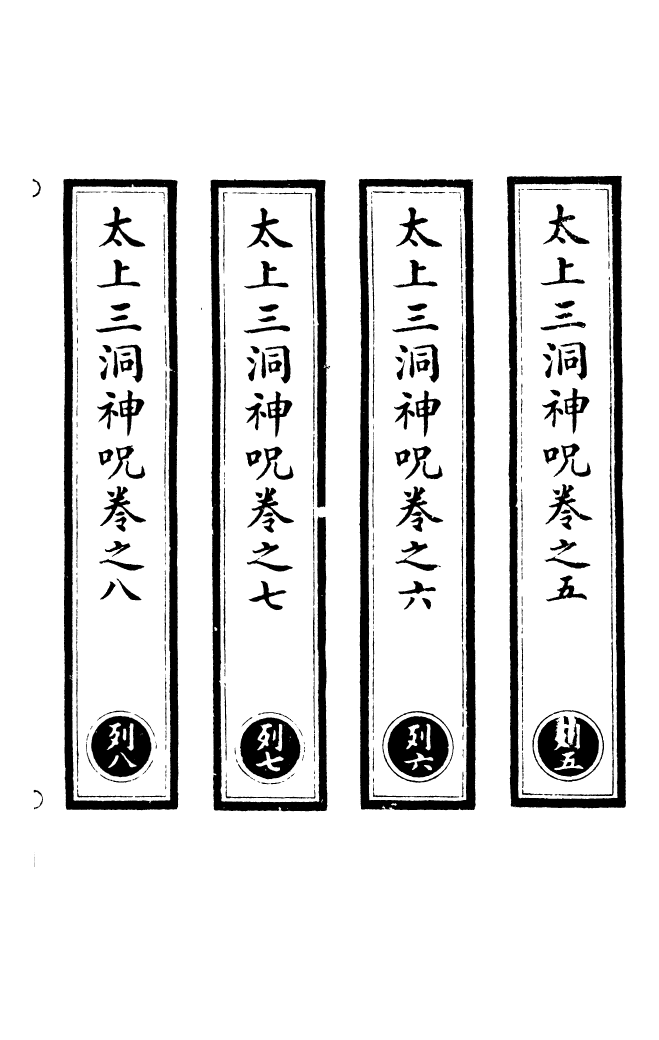 太上三洞神呪卷之五
五
太上三洞神呪卷之六
列六
太上三洞神呪卷之七
列七
太上三洞神呪卷之八
列八